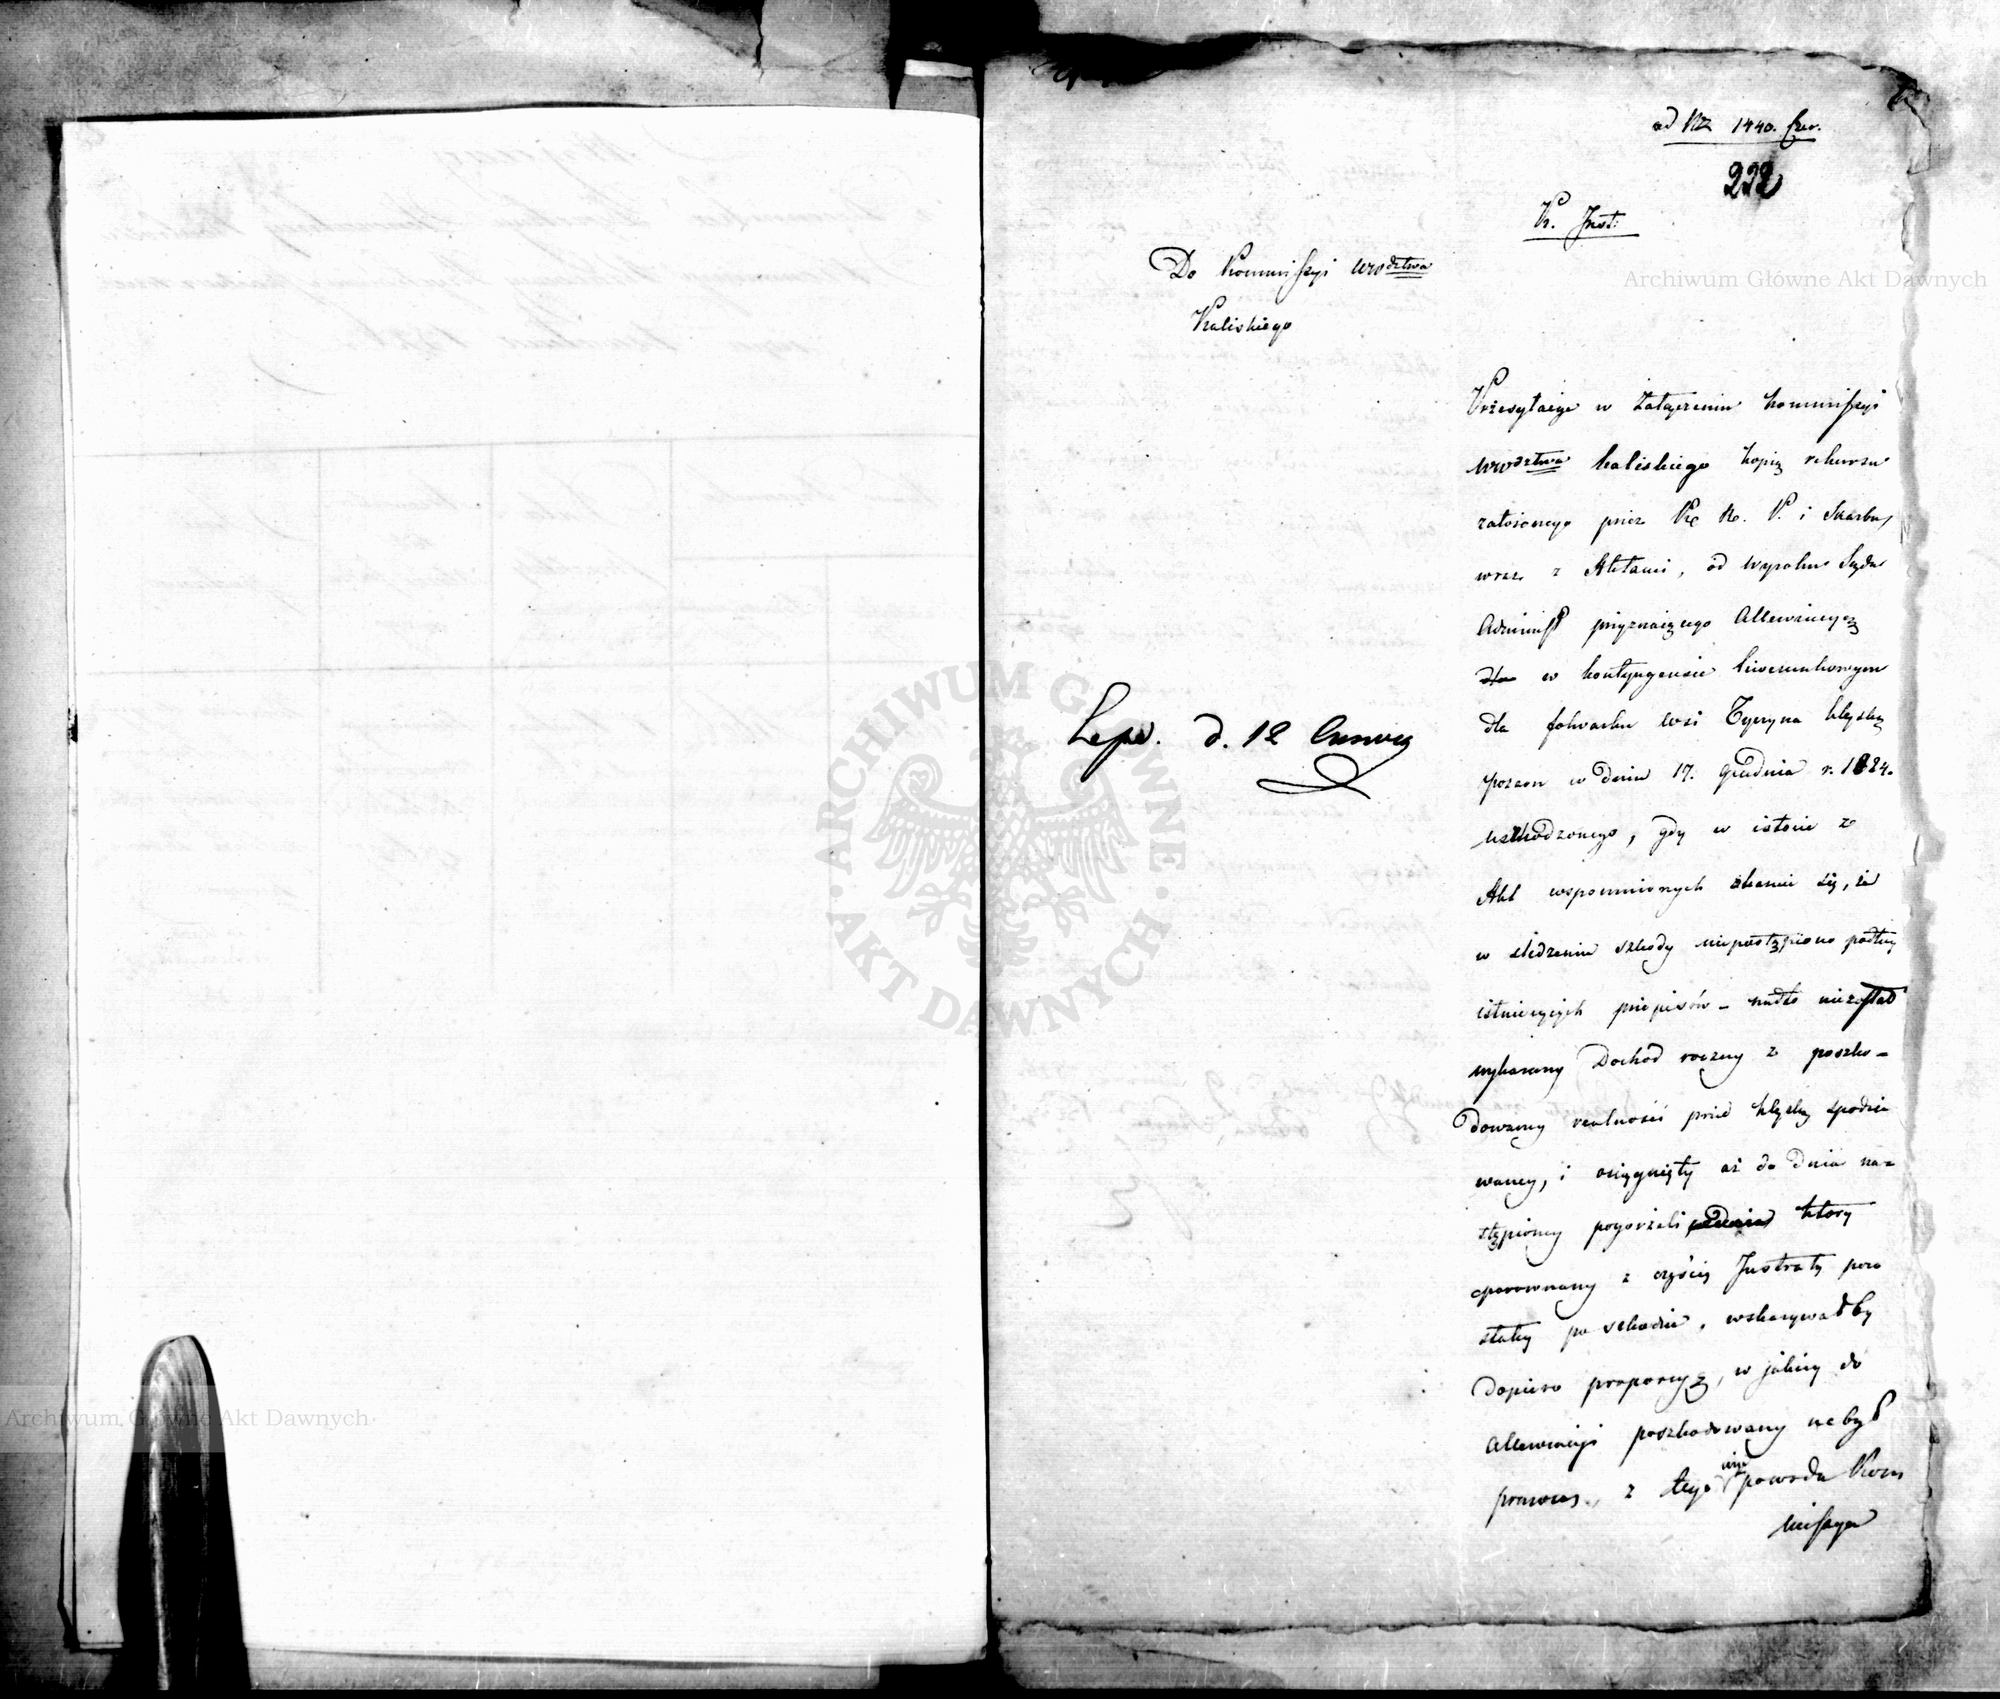 ad Nro 1440. Czer.
222
K. Inst:
Do Kommissyi Wwdztwa
Kaliskiego
Przesyłaiąc w załączeniu kommissyi
Wwdztwa kaliskiego kopią rekursu
założonego przez K. R. P. i Skarbu,
wraz z Aktami, od wyroku Sądu
Adminis przyznaiącego Allewiacyą
dla w kontyngensie liwerunkowym
dla folwarku wsi klęską
pożaru w dniu 17. Grudnia r. 1824.
uszkodzonego, gdy w istocie z
Akt wspomnionych okazuie się, że
w śledzeniu szkody niepostąpiono podług
istnieiących przepisów – nadto niezostał
wykazany Dochód roczny z poszko-
dowaney realności przed klęską spodzie
waney, i osiągnięty aż do dnia na-
stąpioney pogorzeli który
porównany z częścią Intraty pozo
stałey po szkodzie, wskazywałby
dopiero proporcyą, w jakiey do
Allewiacyi poszkodowany nabył
prawo, z tego więc powodu Kom
missya
Lepr. d. 12 Czerwca
Archiwum Główne Akt Dawnych
Archiwum Główne Akt Dawnych
ARCHIWUM GŁÓWNE · AKT DAWNYCH ·